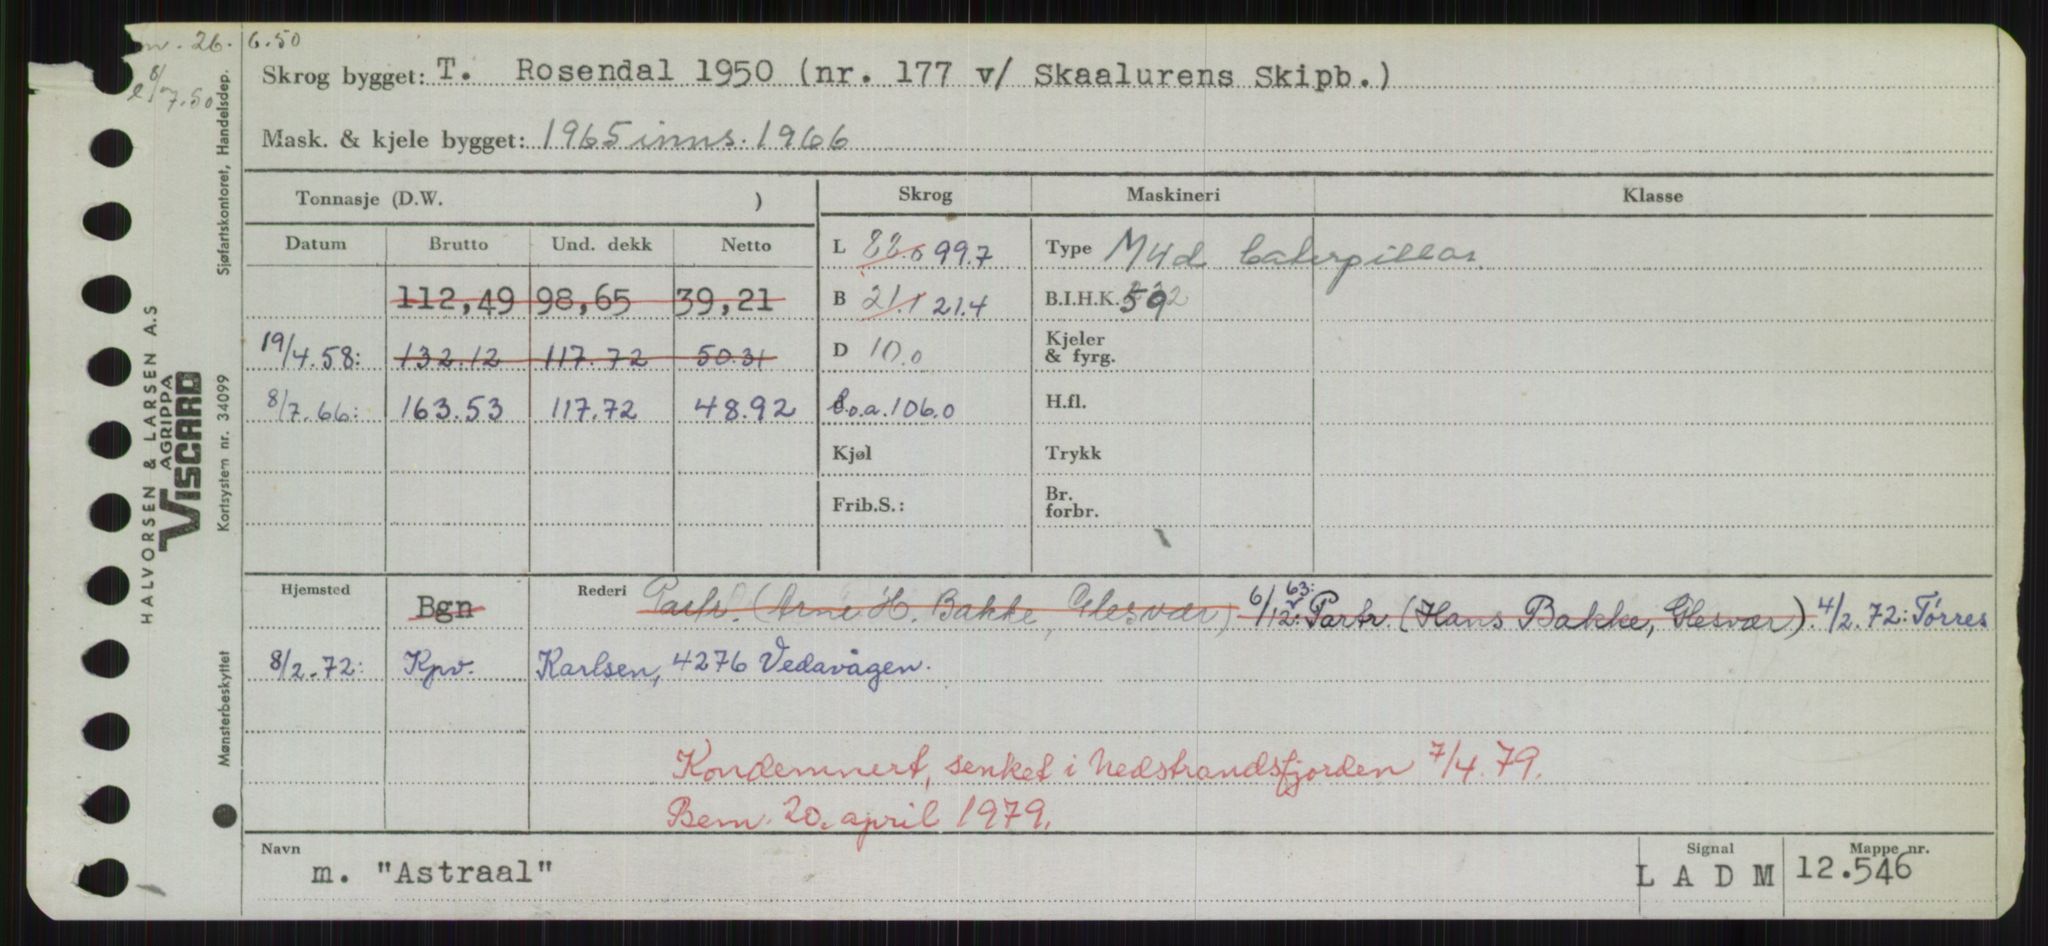 26. 6.50
8/7.50
Skrog bygget: T. Rosendal 1950 (nr. 177 v/ Skaalurens Skipb.)
Mask. & kjele bygget: 1965 inns. 1966
Tonnasje (D.W. )
Skrog
Maskineri
Klasse
Datum Brutto Und. dekk Netto
112,49 98,65 39,21
19/4.58: 132.12 117.72 50.31
8/7.66: 163.53 117.72 48.92
L 99.7
B 21.1 21.4
D 10.0
l.o.a. 106.0
Kjøl
Frib.S.:
Type M4d Caterpillar
B.I.H.K. 59
Kjeler
& fyrg.
H.fl.
Trykk
Br.
forbr.
Hjemsted Bgn Rederi Partr. (Arne H. Bakke, Glesvær) 6/12 63: Partr. (Hans Bakke, Glesvær). 4/2.72: Tørres
8/2.72: Kpv. Karlsen, 4276 Vedavågen.
Kondemnert, senket i Nedstrandsfjorden 7/4.79.
Bem. 20. april 1979.
Navn m. "Astraal"
Signal L A D M
Mappe nr. 12.546
HALVORSEN & LARSEN A.S
AGRIPPA
VISCARD
Mønsterbeskyttet Kortsystem nr. 34099 Sjøfartskontoret, Handelsdep.